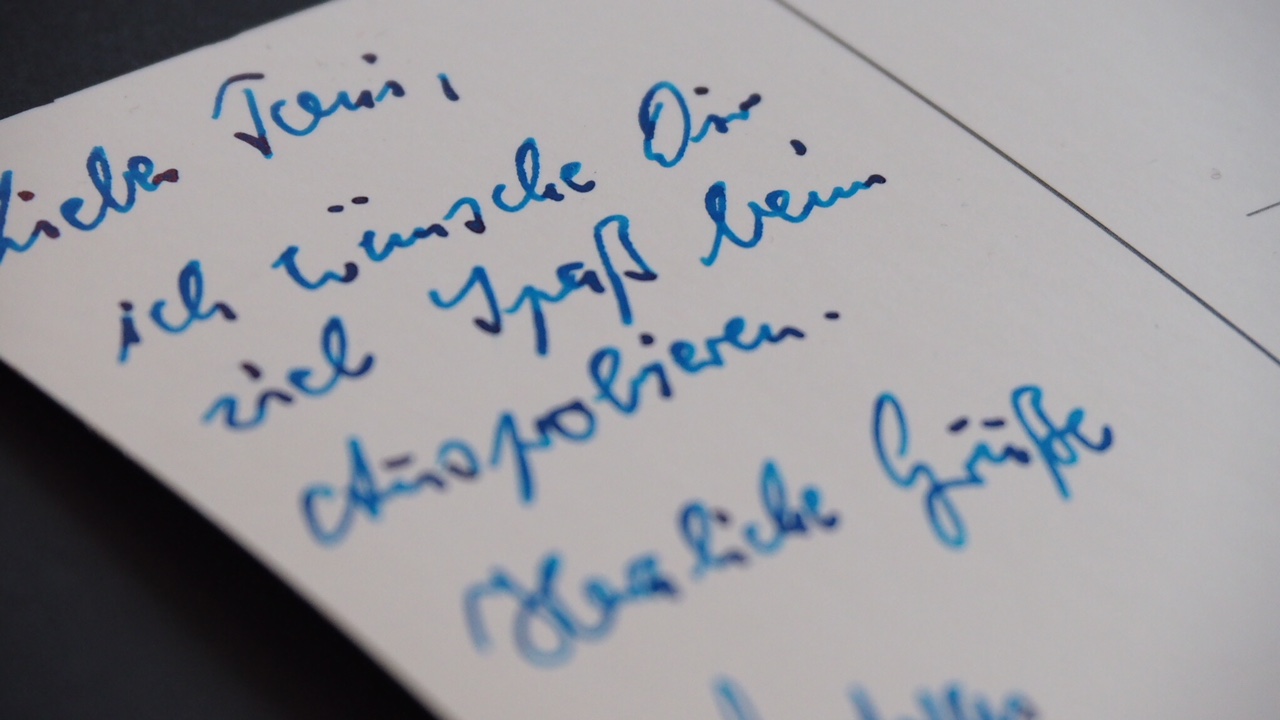 Lieber Tanis,
ich wünsche Dir
viel Spaß beim
Ausprobieren.
Herzliche Grüße